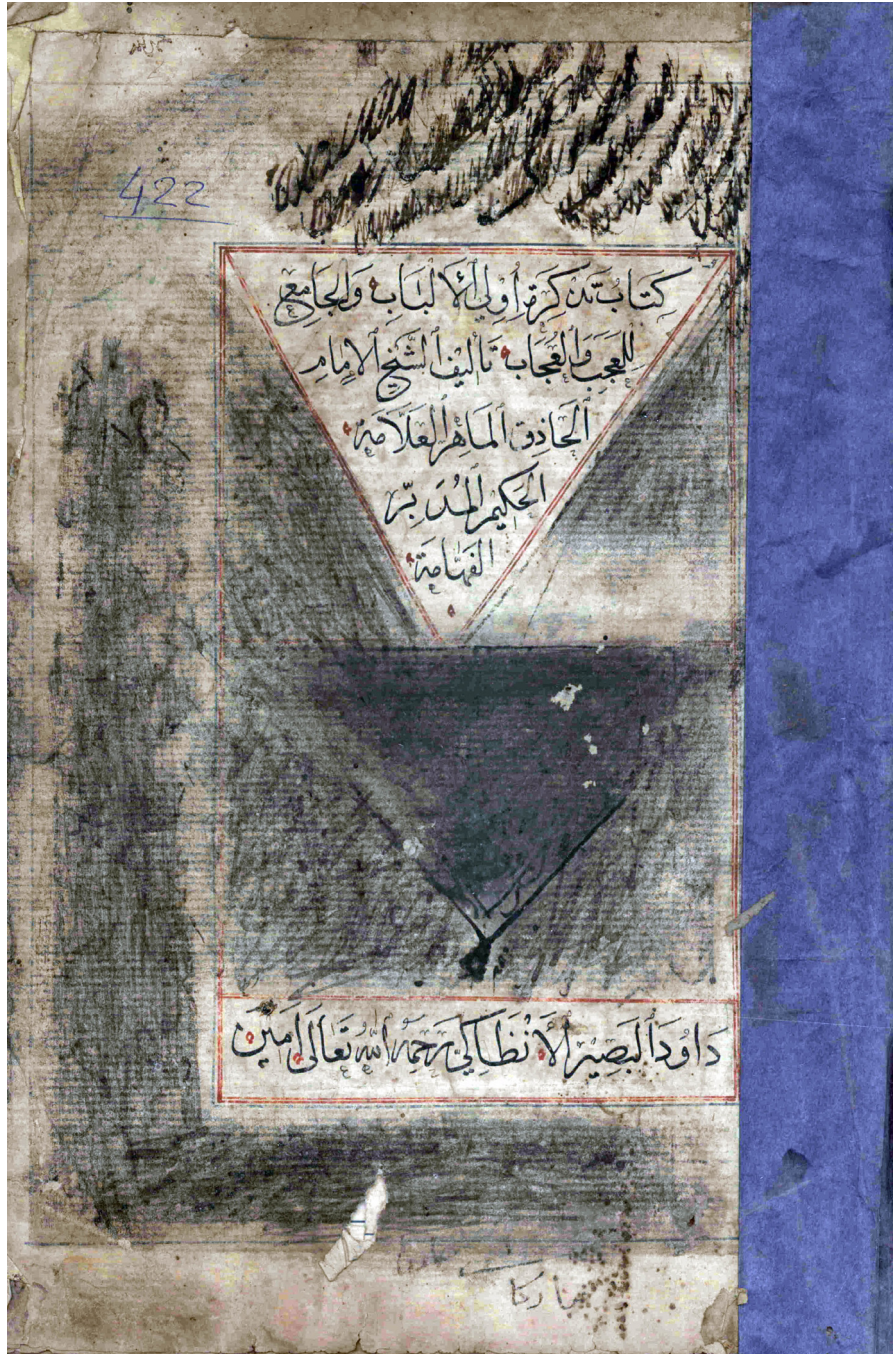 422
كتاب تذكرة أولي الألباب والجامع
للعجب والعجاب تأليف الشيخ الإمام
الحاذق الماهر العلامة
الحكيم المدبر
الفهامة
داود البصير الأنظاكي رحمه الله تعالى امين